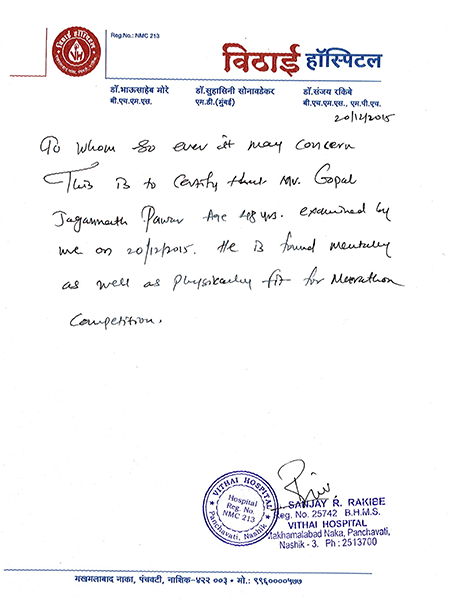 विठाई हॉस्पिटल
VH
Reg.No.: NMC 213
विठाई हॉस्पिटल
डॉ.भाऊसाहेब मोरे
बी.एच.एम.एस.
डॉ.सुहासिनी सोनावडेकर
एम.डी.(मुंबई)
डॉ.संजय रकिबे
बी.एच.एम.एस., एम.पी.एच.
20/12/2015
To whom so ever it may concern
This is to certify that Mr. Gopal
Jagannath Pawar Age 48 yrs. examined by
me on 20/12/2015. He is found mentally
as well as physically fit for Marathon
Competition.
VITHAI HOSPITAL
Hospital
Reg. No.
NMC 213
Panchavati, Nashik
SANJAY R. RAKIBE
Reg. No. 25742 B.H.M.S.
VITHAI HOSPITAL
Makhamalabad Naka, Panchavati,
Nashik - 3. Ph : 2513700
मखमलाबाद नाका, पंचवटी, नाशिक-४२२ ००३ • मो.: ९९६००००५७७